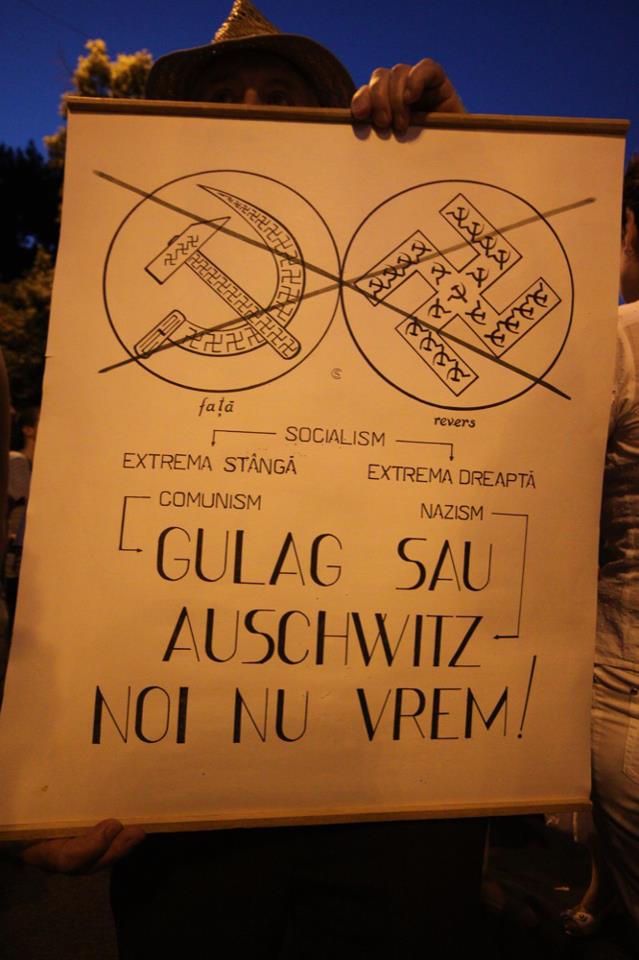 față
revers
SOCIALISM
EXTREMA STÂNGĂ
EXTREMA DREAPTĂ
COMUNISM
NAZISM
GULAG SAU
AUSCHWITZ
NOI NU VREM!